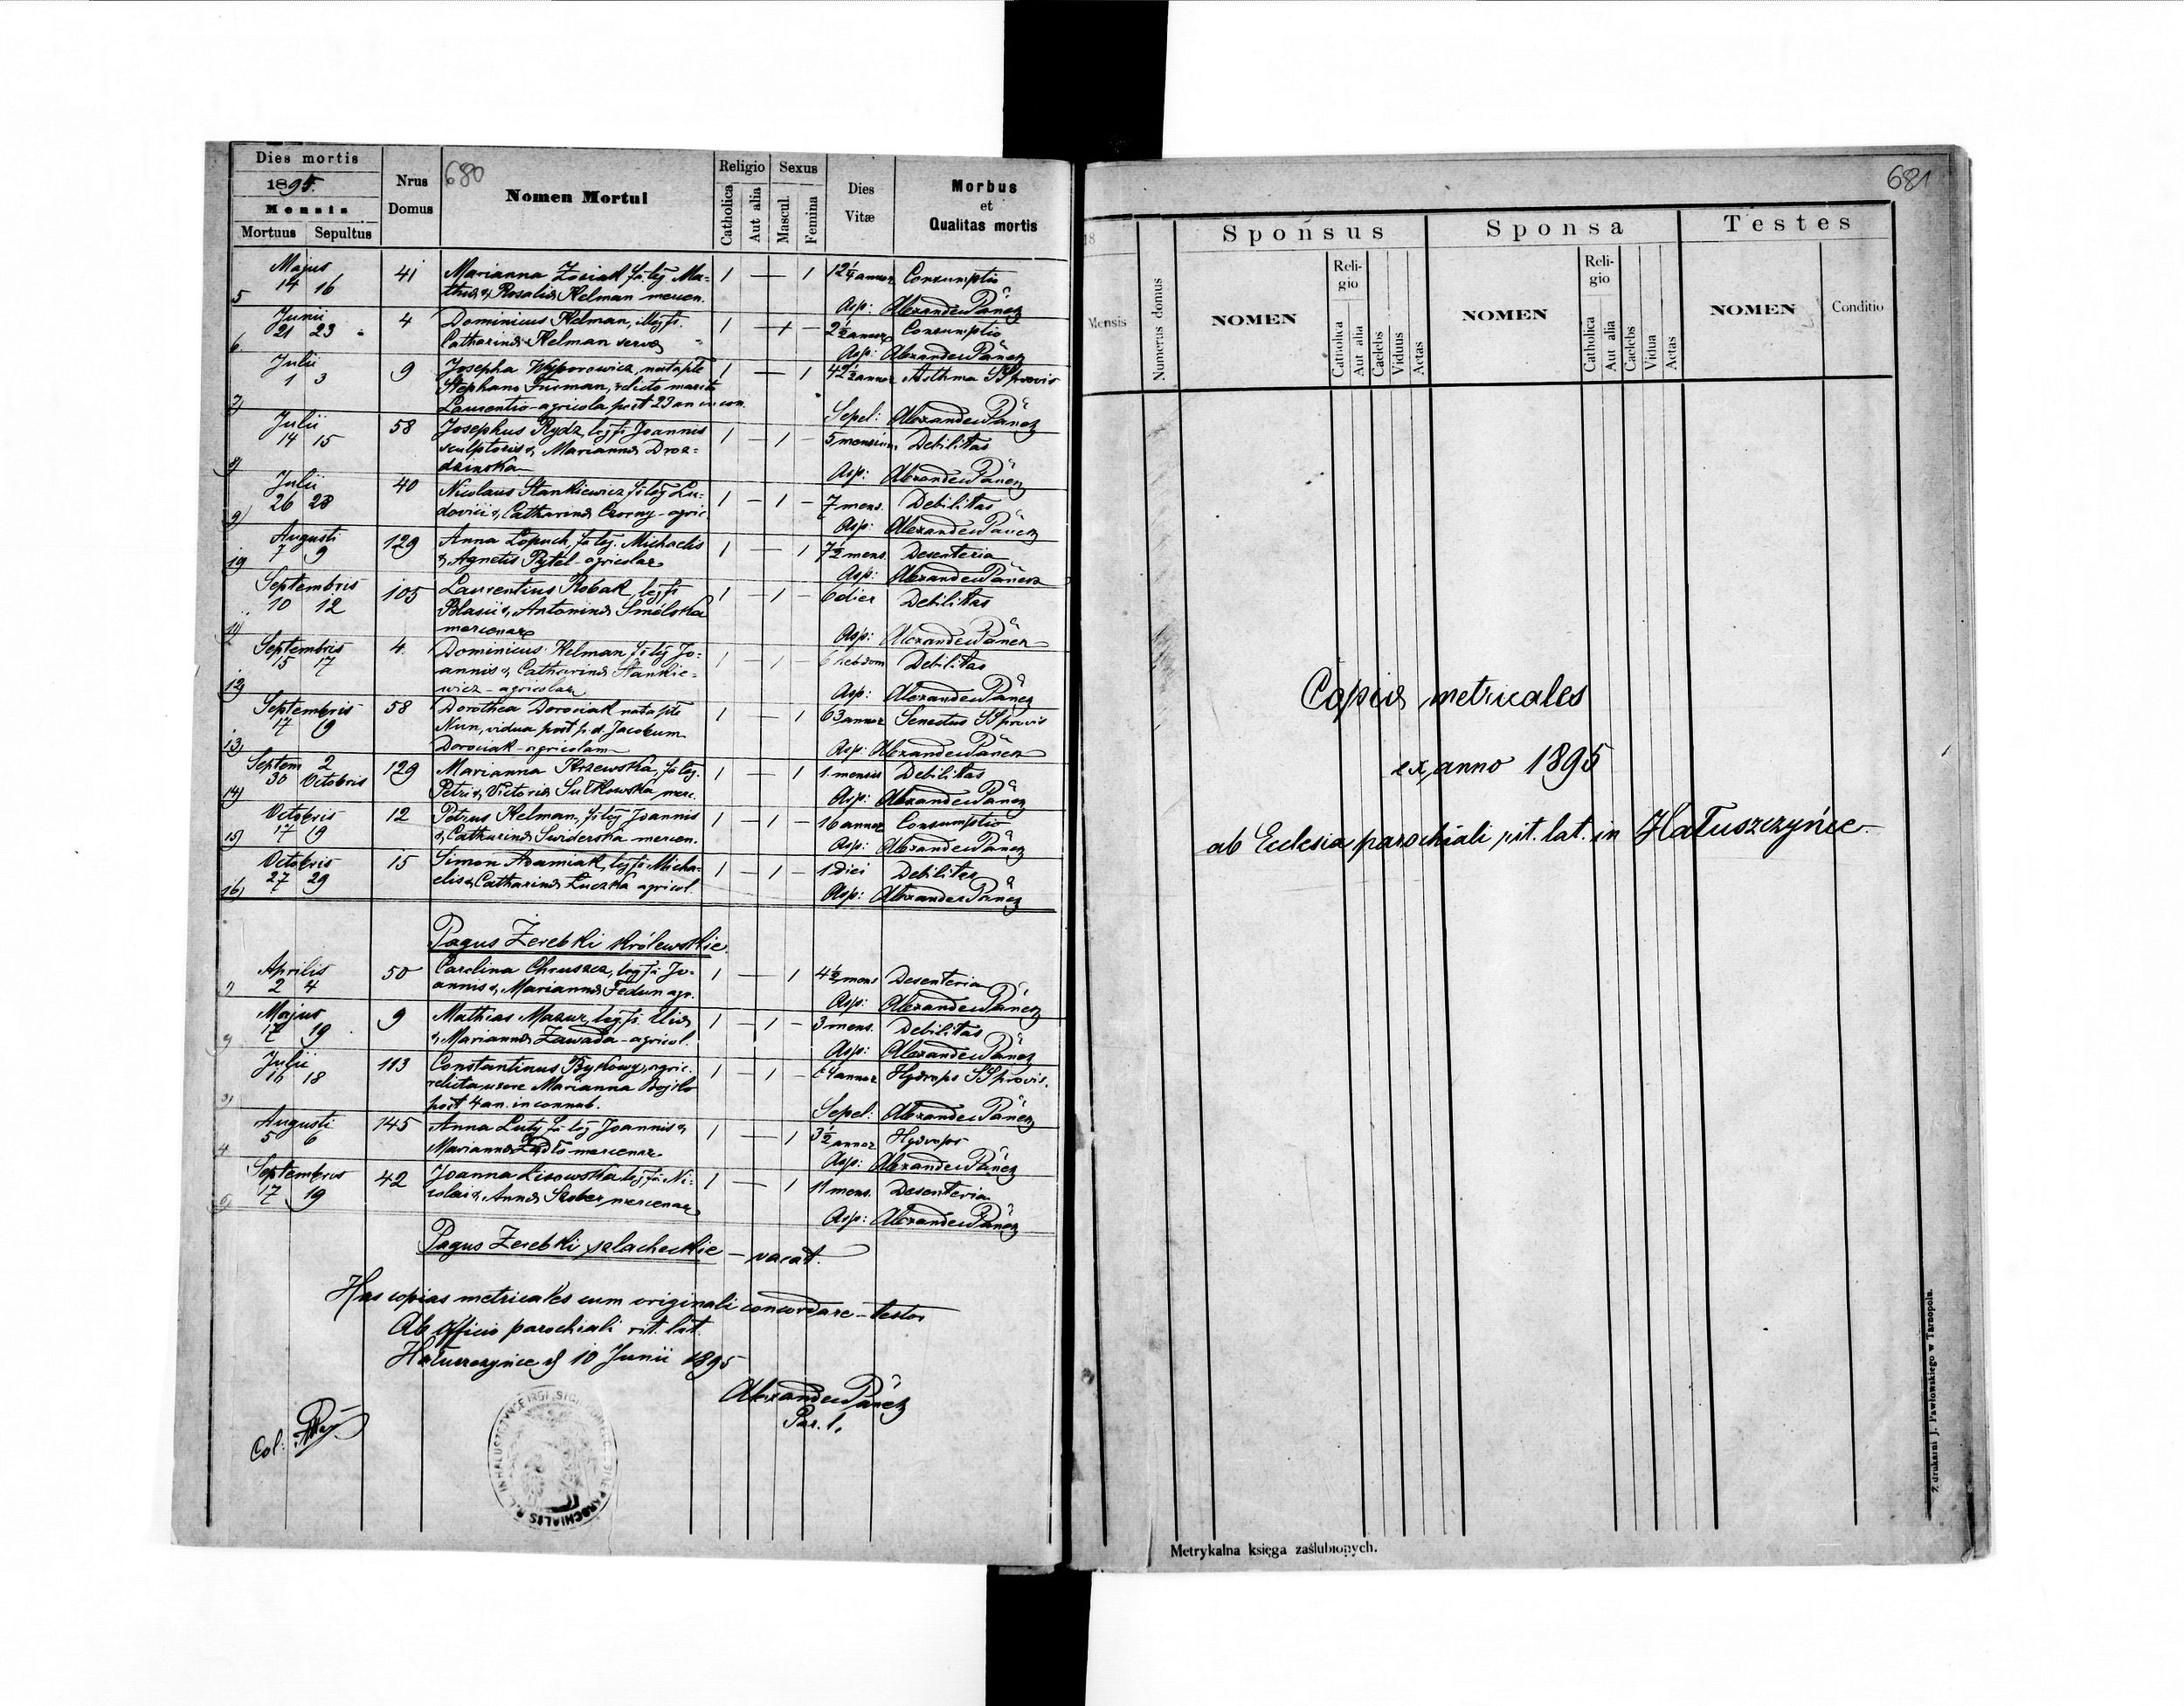 Dies mortis
1895.
Mensis
Mortuus Sepultus
Nrus
Domus
680
Nomen Mortui
Religio
Catholica
Aut alia
Sexus
Mascul.
Femina
Dies
Vitæ
Morbus
et
Qualitas mortis
Majus
5 14 16
41
Marianna Zosiak fa leg Ma-
thiæ & Rosaliæ Helman mercen.
1 — 1
12 1/4 annor Consumptio
Asp: Alexander Päncz
Junii
6 21 23
4
Dominicus Helman, illeg fs.
Catharinæ Helman servæ
1 — 1 —
2 1/2 annor Consumptio
Asp: Alexander Päncz
Julii
7) 1 3
9
Josepha Wyporowicz, nata pte
Stephano Furman, relicto marito
Laurentio - agricola post 23 an in con.
1 — 1
42 1/2 annor Asthma SS provis
Sepel: Alexander Päncz
Julii
8) 14 15
58
Josephus Rydz, leg fs Joannis
sculptoris & Mariannæ Droz-
dzinska
1 — 1 —
5 mensium Debilitas
Asp: Alexander Päncz
Julii
9) 26 28
40
Nicolaus Stankiewicz fs leg Lu-
dovici & Catharinæ Czorny - agric.
1 — 1 —
7 mens. Debilitas
Asp: Alexander Päncz
Augusti
10) 7 9
129
Anna Łopuch, fa leg. Michaelis
& Agnetis Pytel - agricolar
1 — 1
7 1/2 mens. Desenteria
Asp: Alexander Päncz
Septembris
11) 10 12
105
Laurentius Robak, leg fs
Blasii & Antoninæ Smólska
mercenar
1 — 1 —
6 dier Debilitas
Asp: Alexander Päncz
Septembris
12) 15 17
4.
Dominicus Helman fs leg Jo-
annis & Catharinæ Stankie-
wicz - agricolar
1 — 1 —
6 hebdom Debilitas
Asp: Alexander Päncz
Septembris
13) 17 19
58
Dorothea Dorociak nata pte
Nun, vidua post p. d. Jacobum
Dorociak - agricolam
1 — 1
63 annor Senectus SS provis
Asp: Alexander Päncz
Septem 2
14) 30 Octobris
129
Marianna Krzewska, fa leg.
Petri & Victoriæ Sułkowska merc.
1 — 1
1. mensis Debilitas
Asp: Alexander Päncz
Octobris
15) 17 19
12
Petrus Helman, fs leg Joannis
& Catharinæ Swiderska mercen.
1 — 1 —
16 annor Consumptio
Asp: Alexander Päncz
Octobris
16) 27 29
15
Simon Adamiak, leg fs Micha-
elis & Catharinæ Łuczka agricol.
1 — 1 —
1 diei Debilitas
Asp: Alexander Päncz
Pagus Zerebki królewskie
Aprilis
1) 2 4
50
Carolina Chruszcz, leg fa Jo-
annis & Mariannæ Fedun agr.
1 — 1
4 1/2 mens Desenteria
Asp: Alexander Päncz
Majus
2) 17 19
9
Mathias Mazur, leg fs. Eliæ
& Mariannæ Zawada - agricol.
1 — 1 —
3 mens. Debilitas
Asp: Alexander Päncz
Julii
3) 16 18
113
Constantinus Bykowy, agric.
relicta uxore Marianna Bojko
post 4 an. in connub.
1 — 1 —
annor Hydrops SS provis.
Sepel: Alexander Päncz
Augusti
4 5 6
145
Anna Luty fa leg Joannis &
Mariannæ mercenar
1 — 1
3 1/2 annor Hydrops
Asp: Alexander Päncz
Septembris
5) 17 19
42
Joanna Lisowska, leg fa Ni-
colai & Annæ Skober mercenar
1 — 1
11 mens. Desenteria
Asp: Alexander Päncz
Pagus Zerebki szlacheckie — vacat.
Has copias metricales cum originali concordare — testor
Ab officio parochiali rit. lat.
Hałuszczyńce d 10 Junii 1895
Alexander Päncz
Par. l.
Col:
681
18
Mensis
Numerus domus
Sponsus
NOMEN
Reli-
gio
Catholica
Aut alia
Caelebs
Viduus
Aetas
Sponsa
NOMEN
Reli-
gio
Catholica
Aut alia
Caelebs
Vidua
Aetas
Testes
NOMEN
Conditio
Copiæ metricales
ex anno 1895
ab Ecclesia parochiali rit. lat. in Hałuszczyńce
Z drukarni J. Pawłowskiego w Tarnopolu.
Metrykalna księga zaślubionych.